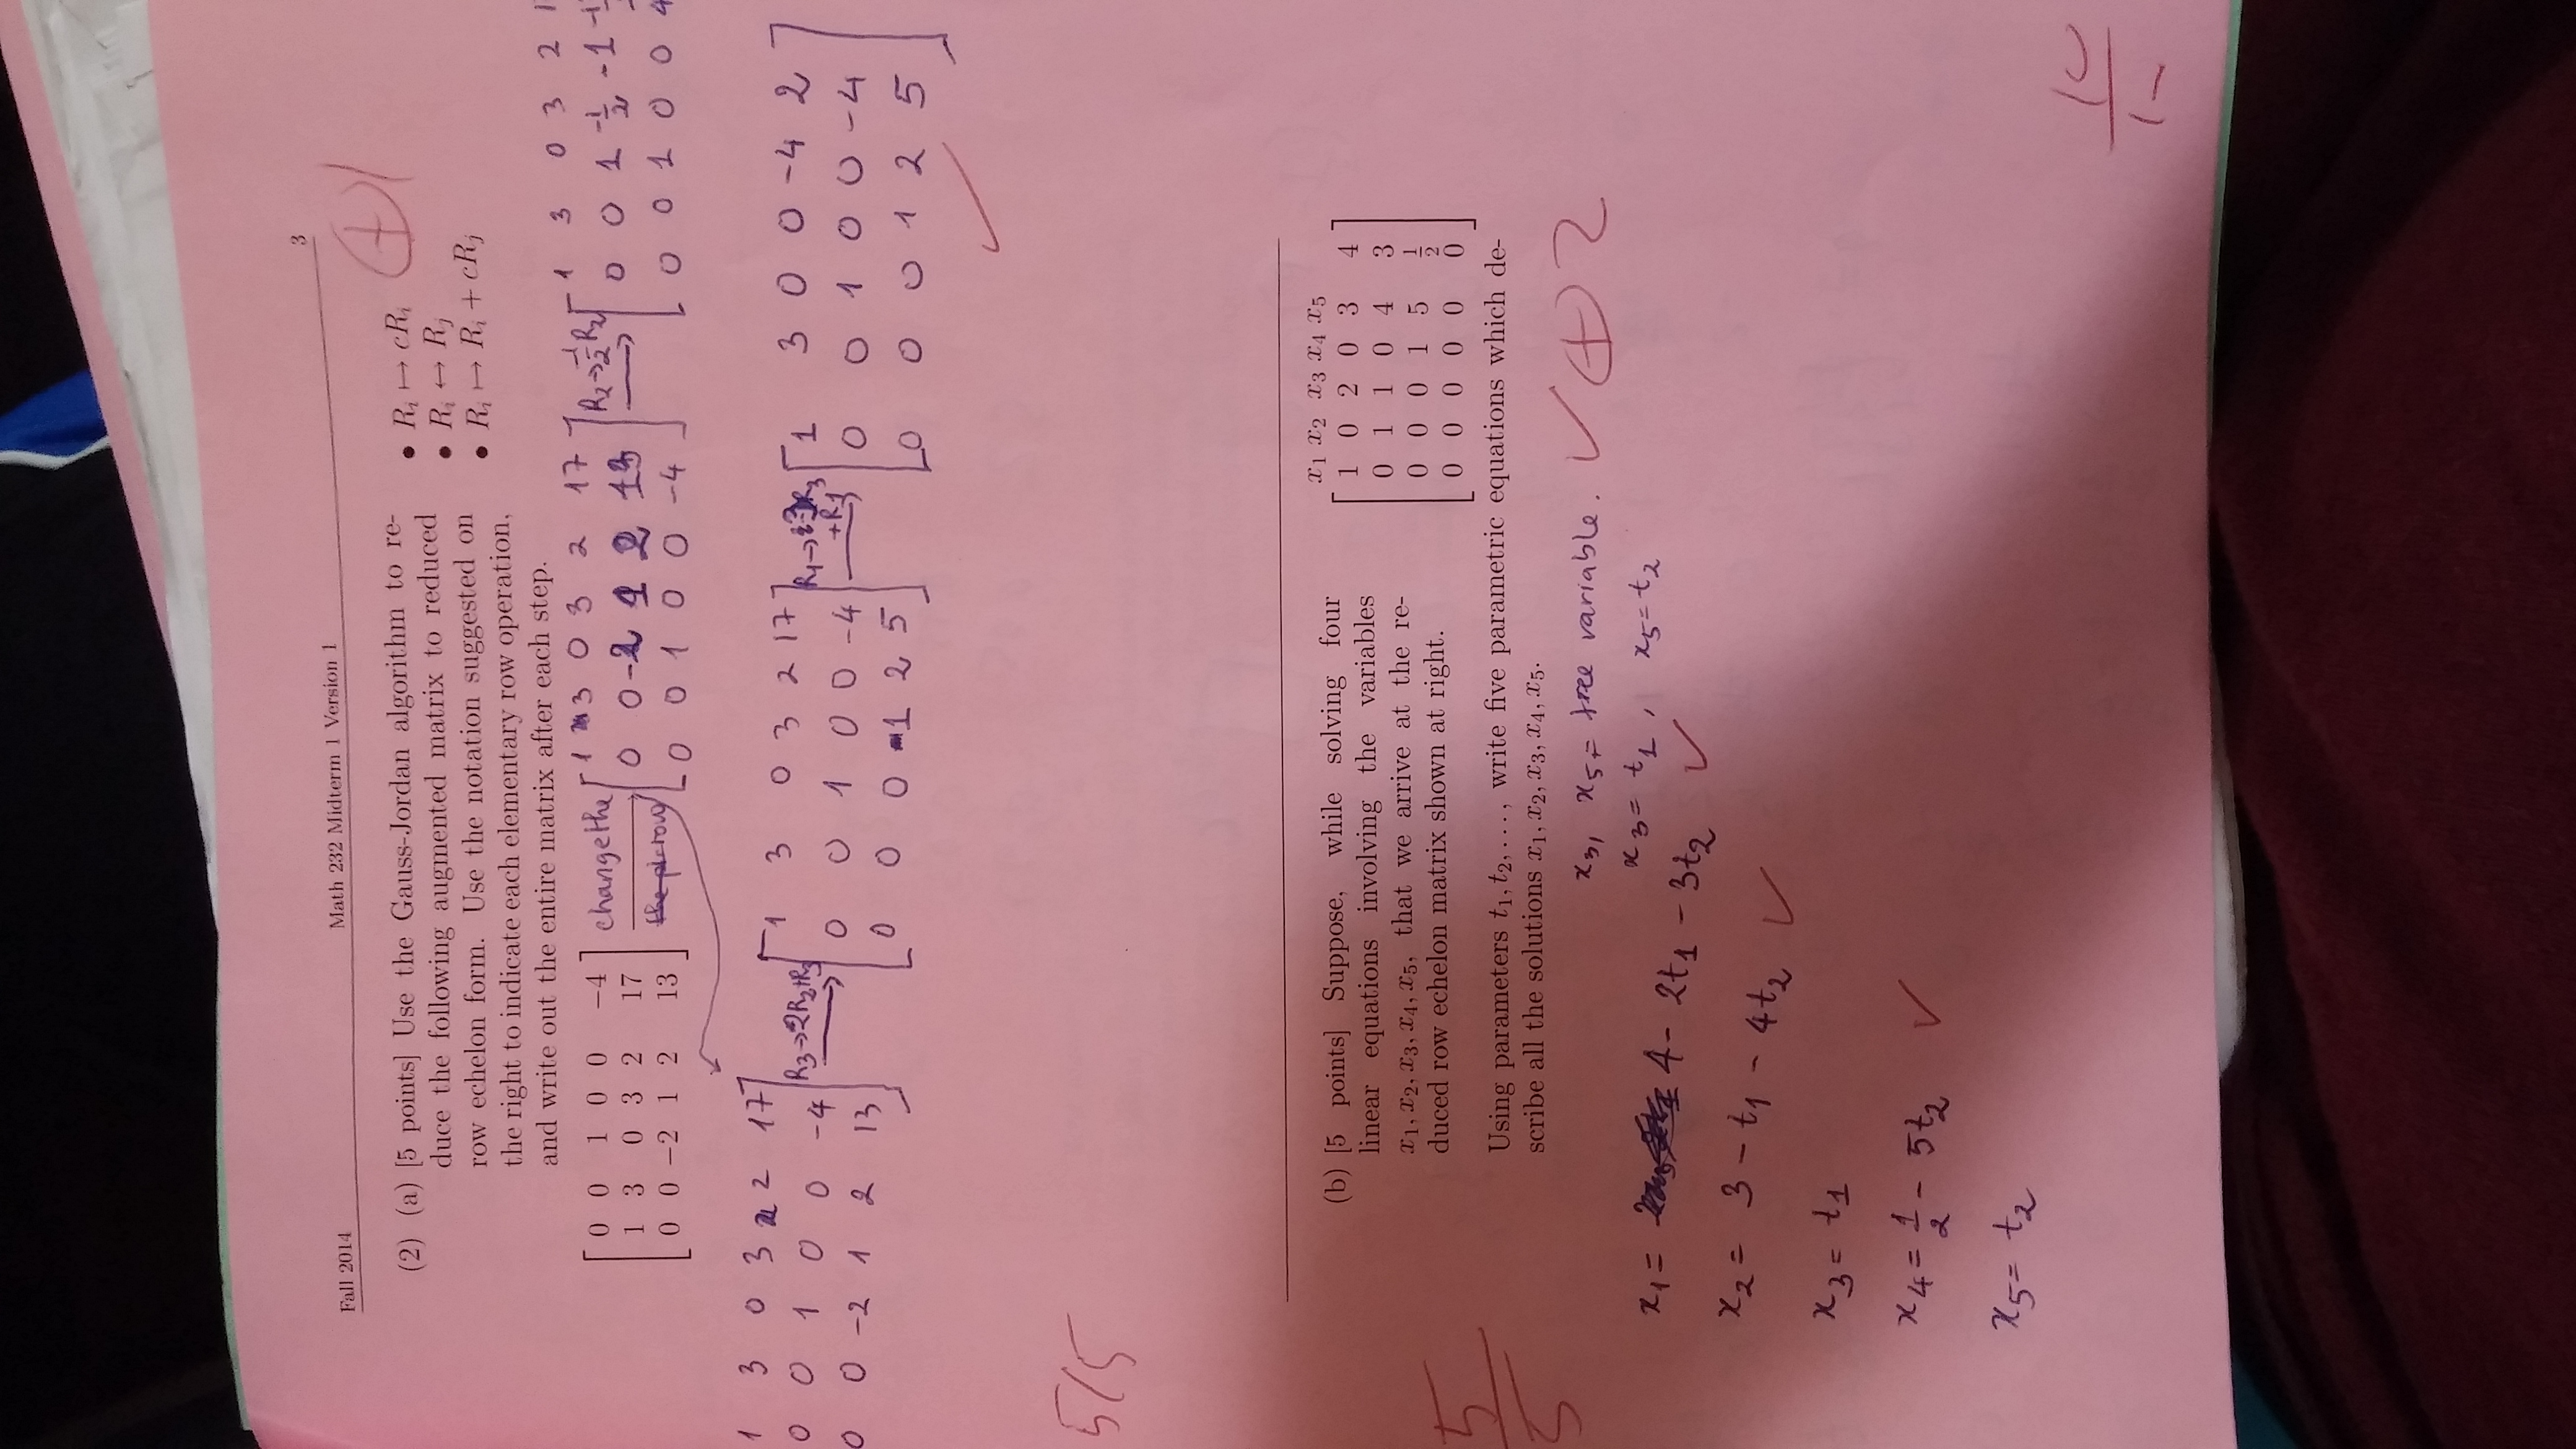 Fall 2014 Math 232 Midterm 1 Version 1 3
(2) (a) [5 points] Use the Gauss-Jordan algorithm to re-
duce the following augmented matrix to reduced
row echelon form. Use the notation suggested on
the right to indicate each elementary row operation,
and write out the entire matrix after each step.
• R_i ↦ cR_i
• R_i ↔ R_j
• R_i ↦ R_i + cR_j
⊕1
0 0 1 0 0 -4
1 3 0 3 2 17
0 0 -2 1 2 13
change the
row
1 3 0 3 2 17
0 0 -2 1 2 13
0 0 1 0 0 -4
R2→-1/2 R2
1 3 0 3 2
0 0 1 -1/2 -1
0 0 1 0 0
1 3 0 3 2 17
0 0 1 0 0 -4
0 0 -2 1 2 13
R3→2R2+R3
1 3 0 3 2 17
0 0 1 0 0 -4
0 0 0 1 2 5
R1→-3R3
+R1
1 3 0 0 -4 2
0 0 1 0 0 -4
0 0 0 1 2 5
5/5
(b) [5 points] Suppose, while solving four
linear equations involving the variables
x1, x2, x3, x4, x5, that we arrive at the re-
duced row echelon matrix shown at right.
x1 x2 x3 x4 x5
1 0 2 0 3 4
0 1 1 0 4 3
0 0 0 1 5 1/2
0 0 0 0 0 0
Using parameters t1, t2, ..., write five parametric equations which de-
scribe all the solutions x1, x2, x3, x4, x5.
x3, x5 = free variable. ✓ ⊕2
x3 = t1, x5 = t2
x1 = 4 - 2t1 - 3t2 ✓
x2 = 3 - t1 - 4t2 ✓
x3 = t1
x4 = 1/2 - 5t2 ✓
x5 = t2
5/5